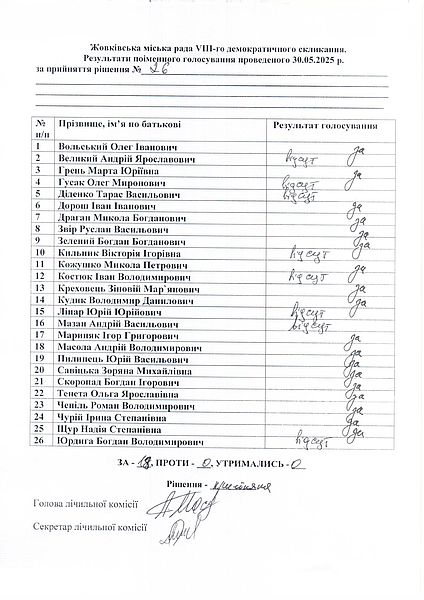 Жовківська міська рада VIII-го демократичного скликання.
Результати поіменного голосування проведеного 30.05.2025 р.
за прийняття рішення № 26
№ п/п Прізвище, ім’я по батькові Результат голосування
1 Вольський Олег Іванович за
2 Великий Андрій Ярославович відсут
3 Грень Марта Юріївна за
4 Гусак Олег Миронович відсут
5 Діденко Тарас Васильович відсут
6 Дорош Іван Іванович за
7 Драган Микола Богданович за
8 Звір Руслан Васильович за
9 Зелений Богдан Богданович за
10 Кильник Вікторія Ігорівна відсут
11 Кожушко Микола Петрович за
12 Костюк Іван Володимирович відсут
13 Креховець Зіновій Мар`янович за
14 Кудик Володимир Данилович за
15 Лінар Юрій Юрійович відсут
16 Мазан Андрій Васильович відсут
17 Мариняк Ігор Григорович за
18 Масола Андрій Володимирович за
19 Пилипець Юрій Васильович за
20 Савіцька Зоряна Михайлівна за
21 Скоропад Богдан Ігорович за
22 Тенета Ольга Ярославівна за
23 Чепіль Роман Володимирович за
24 Чурій Ірина Степанівна за
25 Щур Надія Степанівна за
26 Юрдига Богдан Володимирович відсут
ЗА - 18, ПРОТИ - 0, УТРИМАЛИСЬ - 0
Рішення - прийняте
Голова лічильної комісії
Секретар лічильної комісії